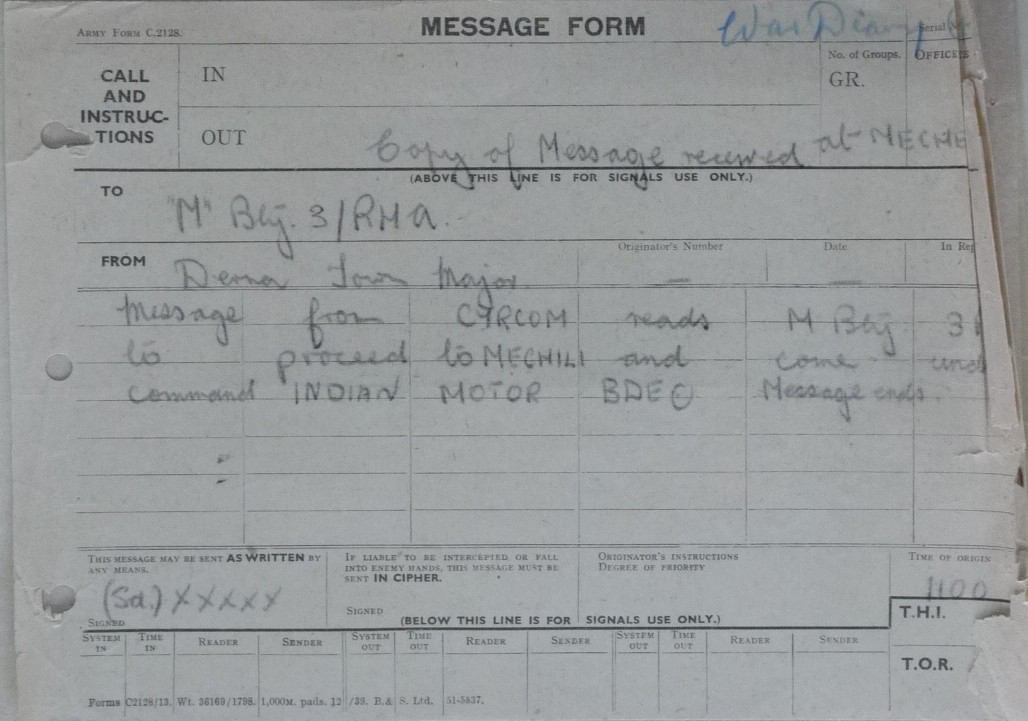 ARMY FORM C.2128.
MESSAGE FORM
War Diary
Serial
CALL AND INSTRUC-TIONS
IN
No. of Groups.
GR.
OFFICE
OUT
Copy of Message received at MECHI
(ABOVE THIS LINE IS FOR SIGNALS USE ONLY.)
TO
"M" Bty. 3/RHA.
FROM
Derna Town Major
Originator's Number
—
Date
—
In Rep
Message from CYRCOM reads M Bty 3
to proceed to MECHILI and come und
command INDIAN MOTOR BDE Message ends.
THIS MESSAGE MAY BE SENT AS WRITTEN BY
ANY MEANS.
(Sd.) XXXXX
SIGNED
IF LIABLE TO BE INTERCEPTED OR FALL
INTO ENEMY HANDS, THIS MESSAGE MUST BE
SENT IN CIPHER.
SIGNED
ORIGINATOR'S INSTRUCTIONS
DEGREE OF PRIORITY
TIME OF ORIGIN
1100
(BELOW THIS LINE IS FOR SIGNALS USE ONLY.)
T.H.I.
SYSTEM IN TIME IN READER SENDER SYSTEM OUT TIME OUT READER SENDER SYSTEM OUT TIME OUT READER SENDER
T.O.R.
Forms C2128/13. Wt. 36169/1798. 1,000M. pads. 12/39. B.& S. Ltd. 51-5837.